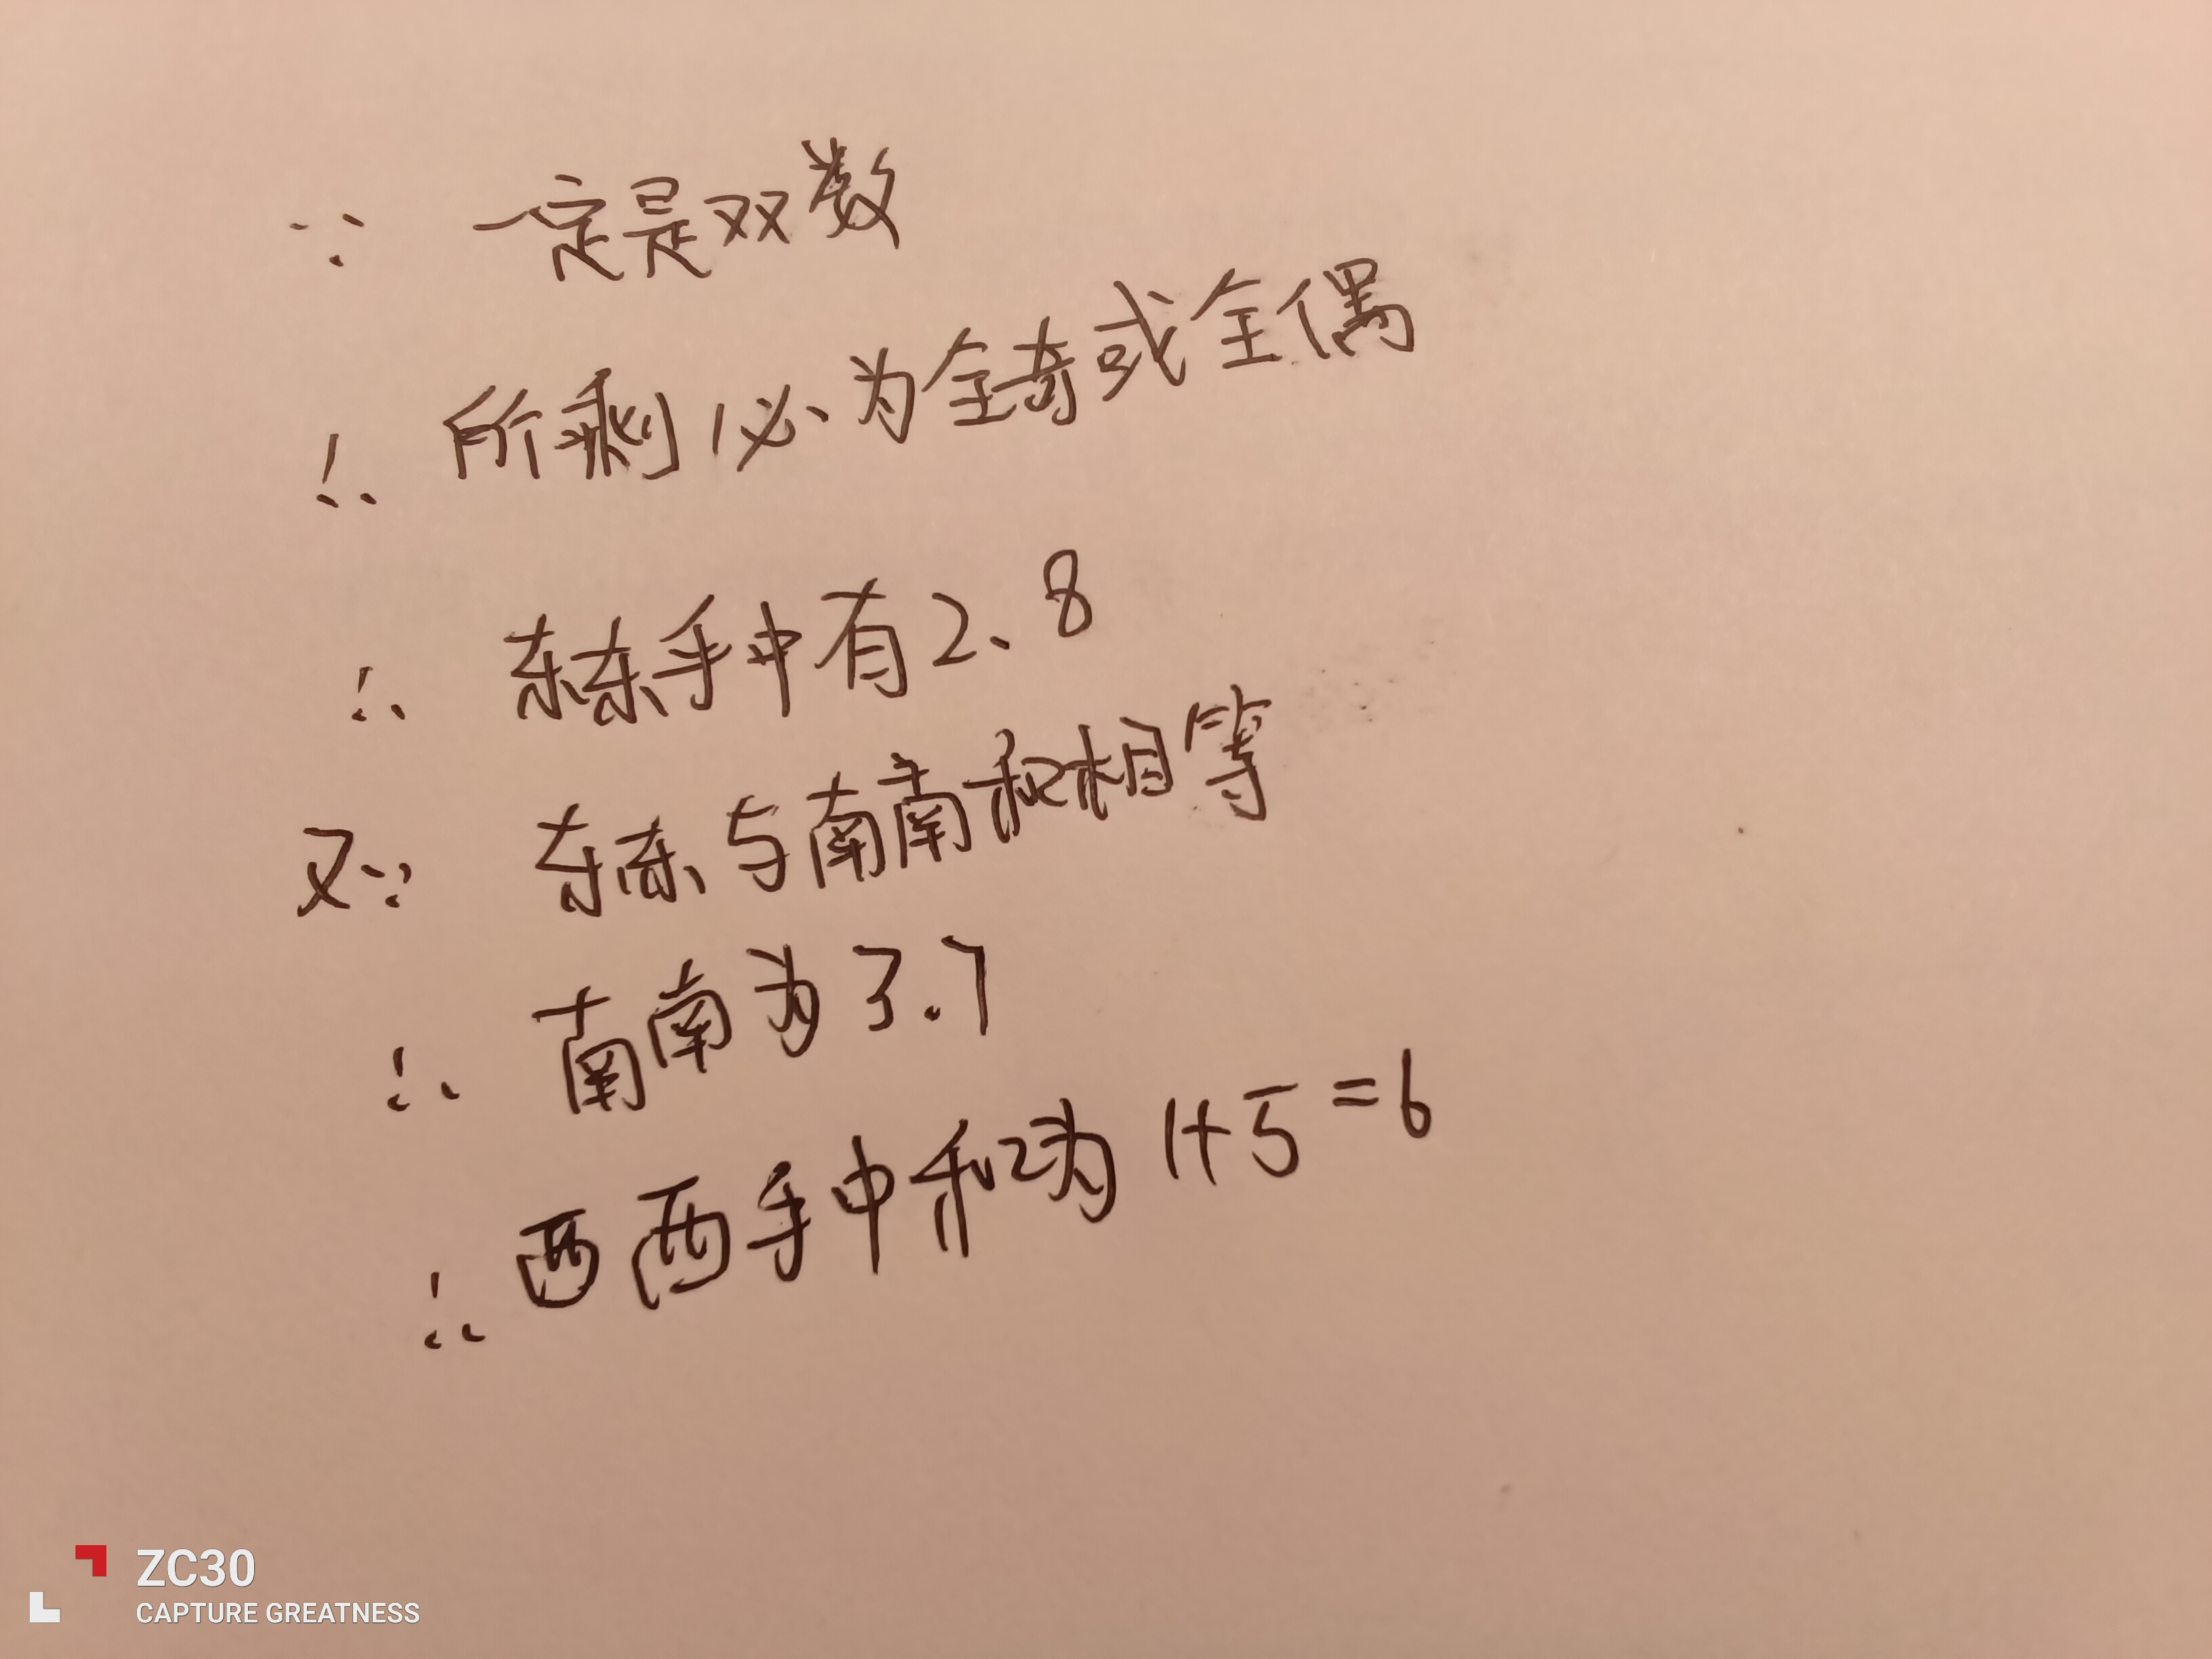 ∵ 一定是双数
∴ 所剩必为全奇或全偶
∴ 东东手中有2、8
又∵ 东东与南南和相等
∴ 南南为3.7
∴ 西西手中和为 1+5=6
ZC30
CAPTURE GREATNESS